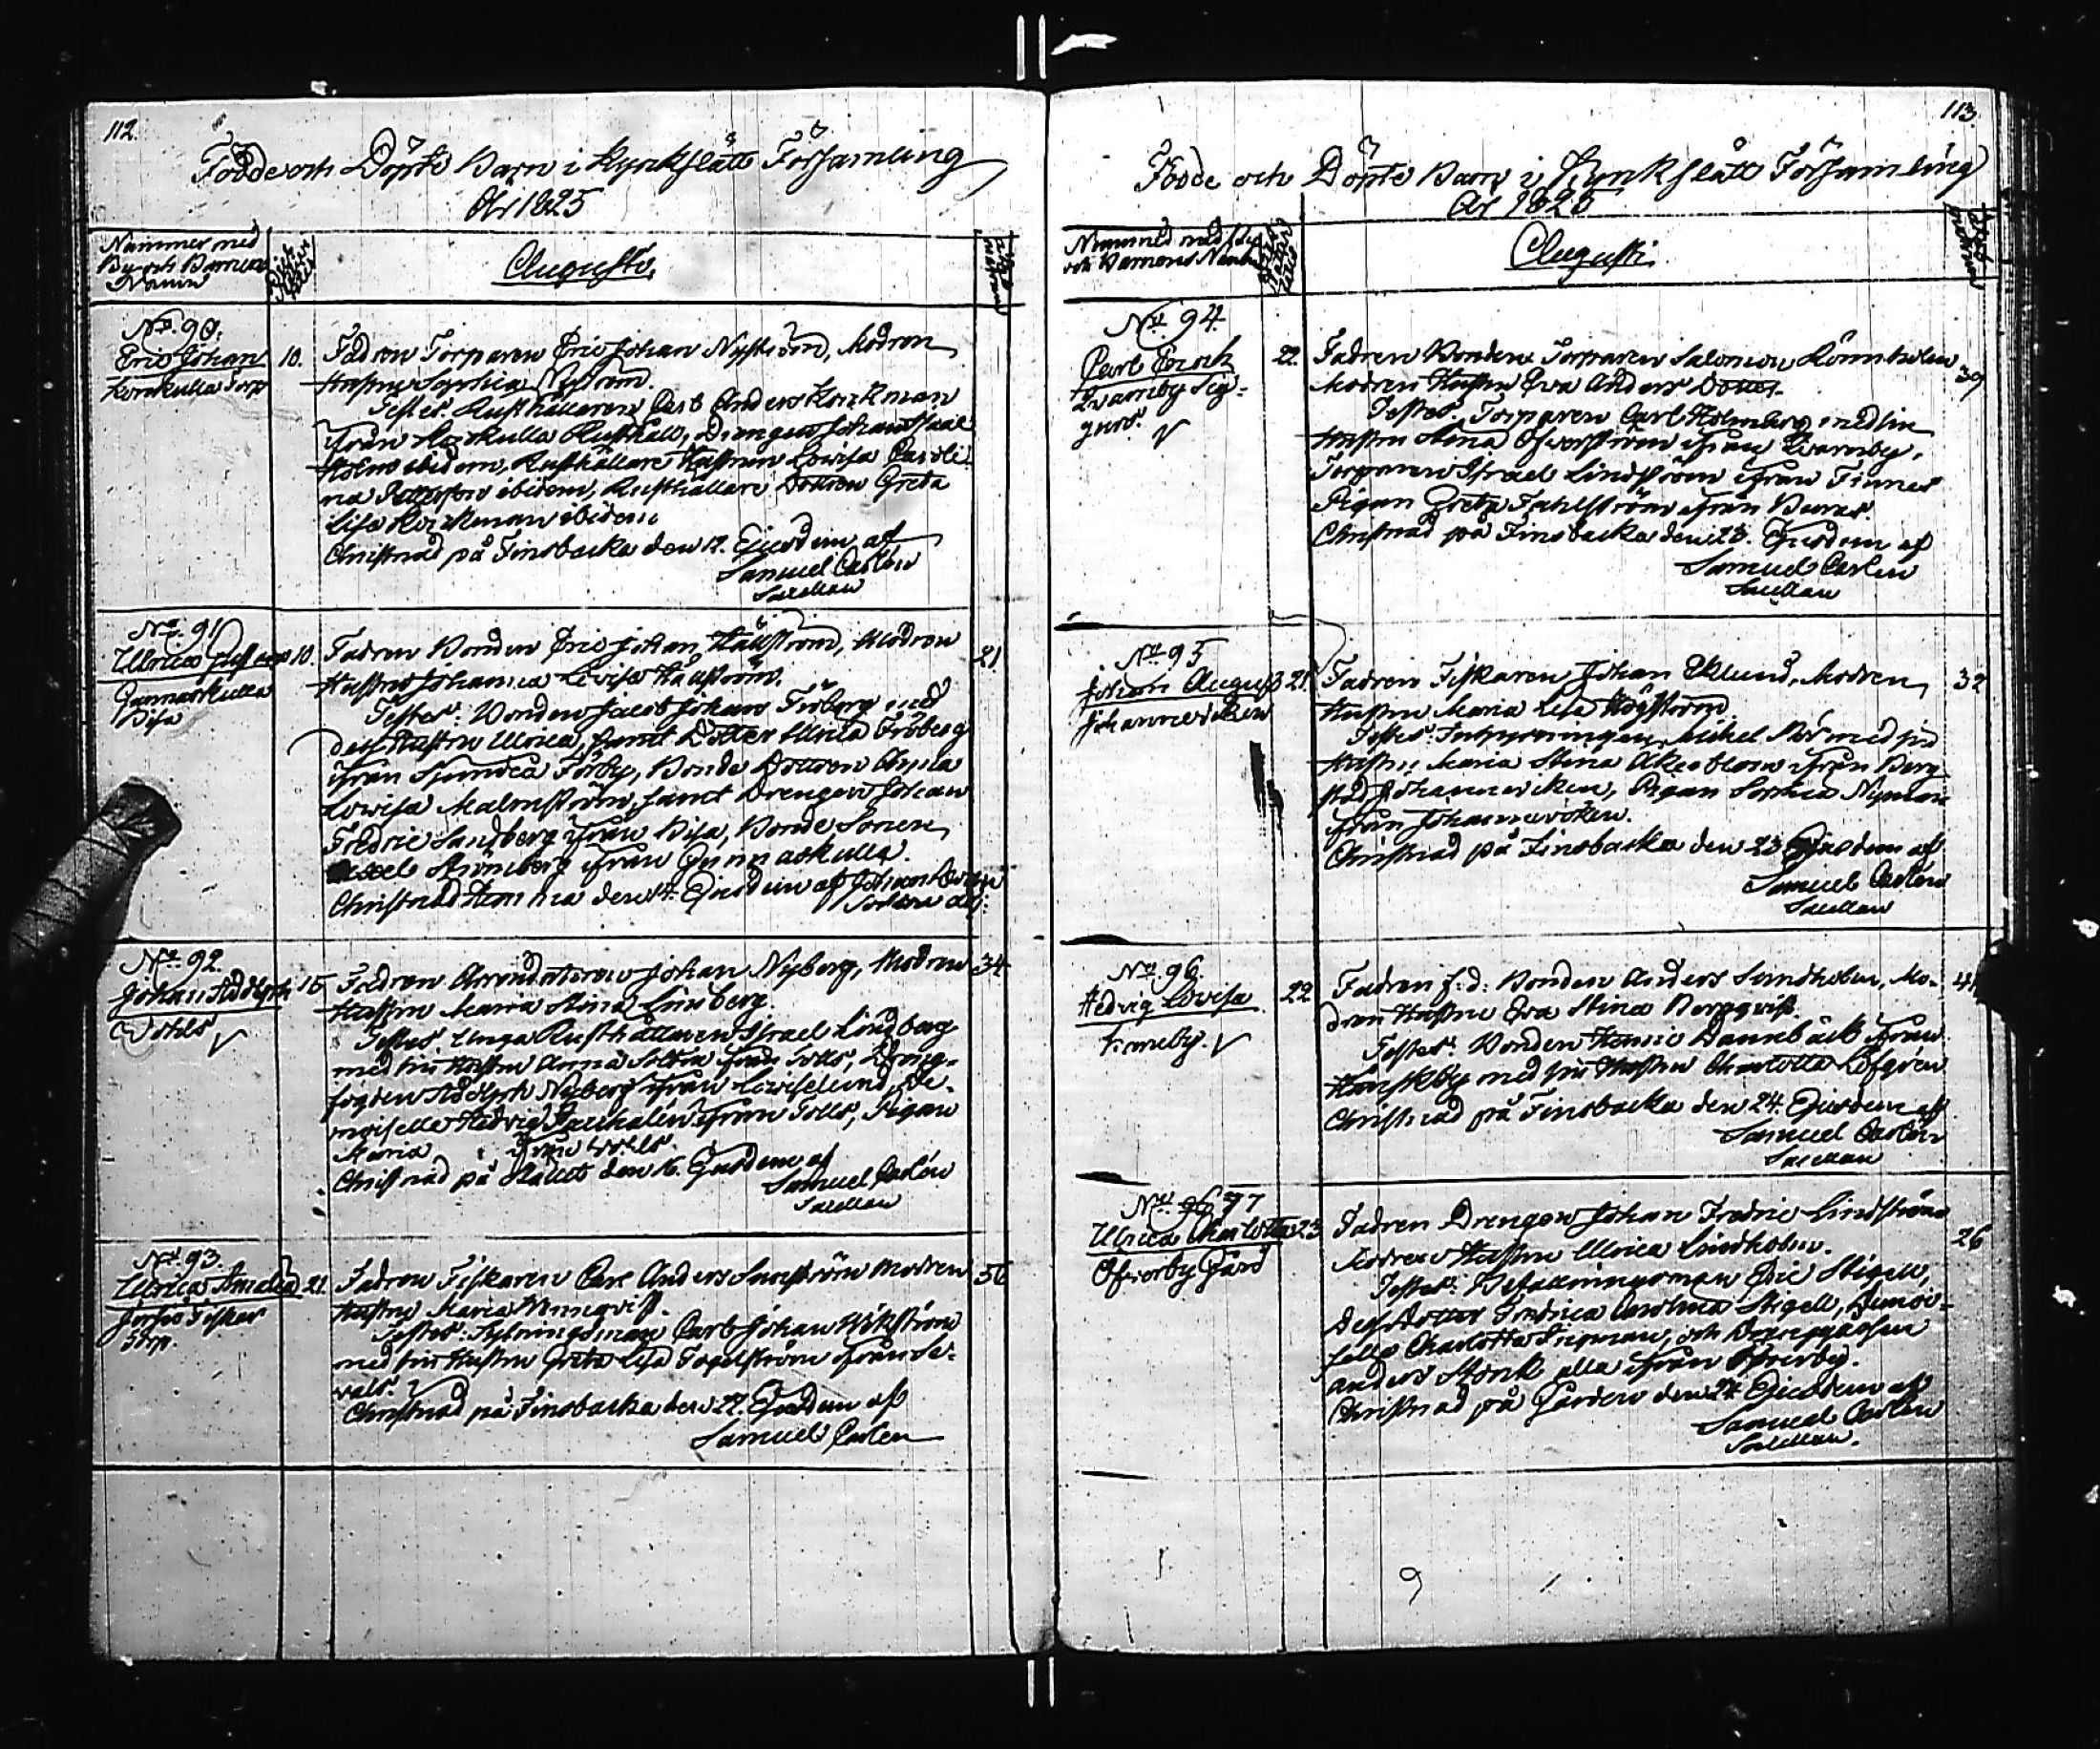 112.
Födde och Döpte Barn i Kyrkslätt Församling
År 1825
Nummer med
By och Barnens
Namn
Augusti.
No. 90.
Eric Johan
Korskulla Torp
10.
Fadren Torparen Eric Johan Nyström, Modren
Hustru Sophia Nyström.
Testes: Rusthållaren Carl Anders Korkman
ifrån Korskulla Rusthåll, Drengen Johan
Holm ibidem, Rusthållare Hustrun Lovisa Caroli-
na ibidem, Rusthållare Dottren Greta
Lisa Korkman ibidem
Christnad på Finsbacka den 12. Ejusdem af
Samuel Carlén
Sacellan
No. 91
Ulrica Gustava
Gunnarskulla
Bisa
10.
Fadren Bonden Eric Johan Hällström, Modren
21.
Hustru Johanna Lovisa Hällström.
Testes: Bonden Jacob Johan Fröberg med
dess Hustru Ulrica, samt Dotter Ulrica Fröberg
ifrån Förby, Bonde Dottren
Lovisa Malmström, samt Drengen Johan
Fredric Sandberg ifrån Bisa, Bonde Sonen
Axel Strömberg ifrån Gunnarskulla.
Christnad hemma den 14. Ejusdem af Johan
No. 92.
Johan Adolph
Wohls
15
Fadren Arrendatoren Johan Nyberg, Modren
34
Hustru Maria Stina Lindberg.
Testes Unga Rusthållaren Israel Lindberg
med sin Hustru Anna Sofia från Tolls, Dreng-
fogden Adolph Nyberg ifrån Loviselund, De-
moiselle Hedvig ifrån Tolls, Pigan
Maria ifrån Wohls.
Christnad på Stället den 16. Ejusdem af
Samuel Carlén
Sacellan
No. 93.
Ulrica Amalia
Jorfvs Fisker
Torp.
21.
Fadren Fiskaren Carl Anders Sundström Modren
36
Hustru Maria Wennqvist.
Testes: Sytningsman Carl Johan Hökström
med sin Hustru Greta Lisa Fogelström ifrån Se-
vals.
Christnad på Finsbacka den 22. Ejusdem af
Samuel Carlén
113.
Födde och Döpte Barn i Kyrkslätt Församling
År 1825
Nummer med By
och Barnens Namn
Augusti.
No. 94.
Carl Enoch
Qvarnby Sig-
gurs.
22.
Fadren Bonden Torparen Salomon Rönnholm
39
Modren Hustru Eva Anders Dotter.
Testes: Torparen Carl Holmberg med sin
Hustru Stina Öfverström ifrån Qvarnby,
Torparen Israel Lindström ifrån Finnes
Pigan Greta Fahlström ifrån Buras.
Christnad på Finsbacka den 23. Ejusdem af
Samuel Carlén
Sacellan
No. 95
Johan August
Johannewiken
21.
Fadren Fiskaren Johan Eklund, Modren
32
Hustru Maria Lisa Högström
Testes: Inhysningen Mikel Mår med sin
Hustru Maria Stina Åkerblom ifrån Berg-
stad Johannewiken, Pigan Sophia Nyman
ifrån Johannewiken.
Christnad på Finsbacka den 23 Ejusdem af
Samuel Carlén
Sacellan
No. 96.
Hedvig Lovisa
Finneby.
22
Fadren f:d: Bonden Anders Sundholm, Mo-
dren Hustru Eva Stina Bergqvist.
Testes: Bonden Henric Dannbäck ifrån
med sin Hustru Charlotta Löfgren
Christnad på Finsbacka den 24. Ejusdem af
Samuel Carlén
Sacellan
No. 97
Ulrica Charlotta
Öfverby Gård
23
Fadren Drengen Johan Fredric Lindström
26
Modren Hustru Ulrica Lindholm.
Testes: Eric Stigell,
Dess Dotter Fredrica Carolina Stigell, Demoi-
selle Charlotta Firpman, och Drenggåssen
Anders Stork alla ifrån Öfverby.
Christnad på Gården den 24 Ejusdem af
Samuel Carlén
Sacellan.